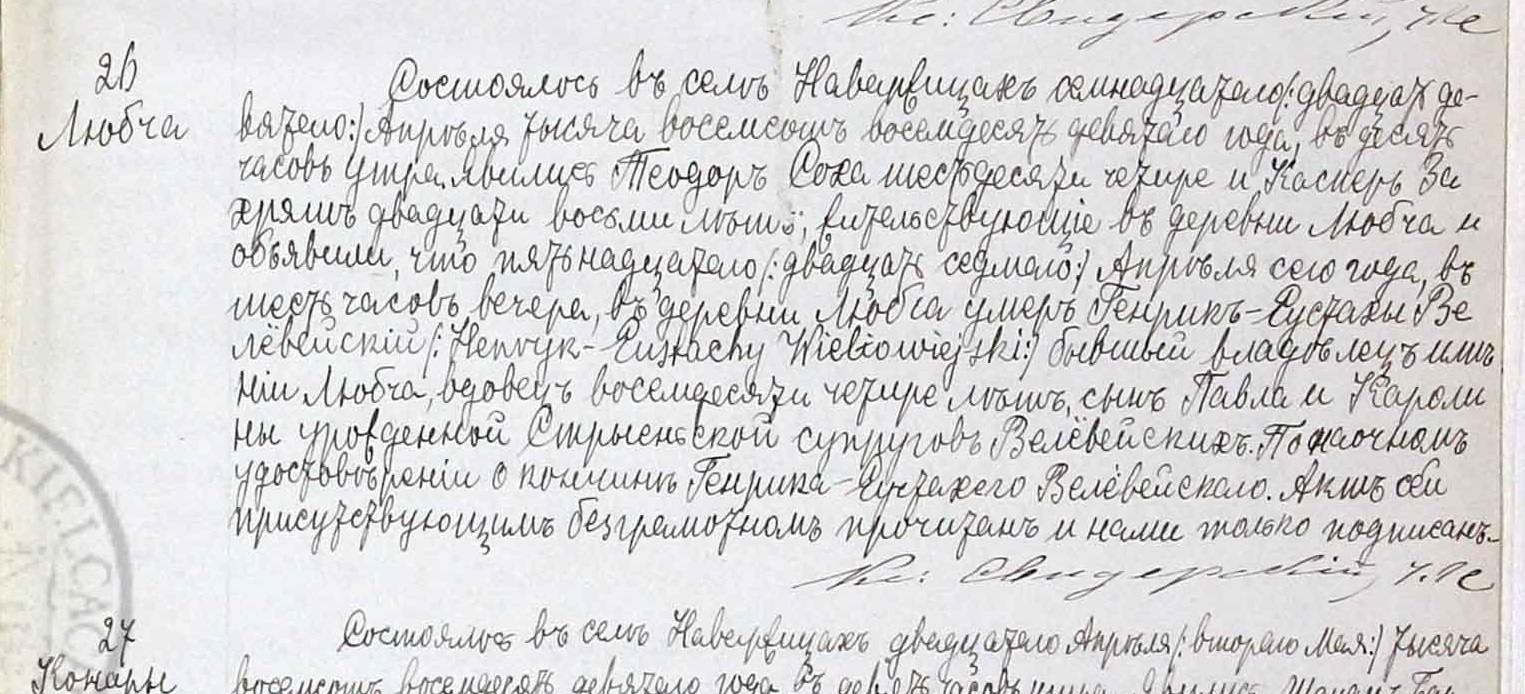 Кс: Свидерскій, ч. с
26
Любча
Состоялось въ селѣ Наверѣицахъ семнадцатаго /: двадцать де-
вятого:/ Апрѣля тысяча восемсотъ восемдесятъ девятаго года, въ десять
часовъ утра. явились Теодоръ Соха шестьдесяти четыре и Касперъ За
хряшъ двадцати восьми лѣтъ, жительствующіе въ деревни Любча и
объявили, что пятьнадцатаго /: двадцать седмаго:/ Апрѣля сего года, въ
шесть часовъ вечера, въ деревни Любча умеръ Генрикъ-Еустахы Ве
лёвейскій /: Henryk-Eustachy Wielowiejski:/ бывшый владѣлецъ имѣ
ніи Любча, вдовецъ восемдесяти четыре лѣтъ, сынъ Павла и Кароли
ны урожденной Стрысньской супруговъ Велёвейскихъ. По наочномъ
удостовѣреніи о кончинѣ Генрика-Еустахего Велёвейскаго. Актъ сей
присутствующимъ безграмотномъ прочитанъ и нами только подписанъ.
Кс: Свидерскій, ч. с
27
Конары
Состоялось въ селѣ двадцатаго Апрѣля /: второго Мая:/ тысяча
восемсотъ восемдесятъ девятаго года въ девять часовъ утра.
KIELCACH